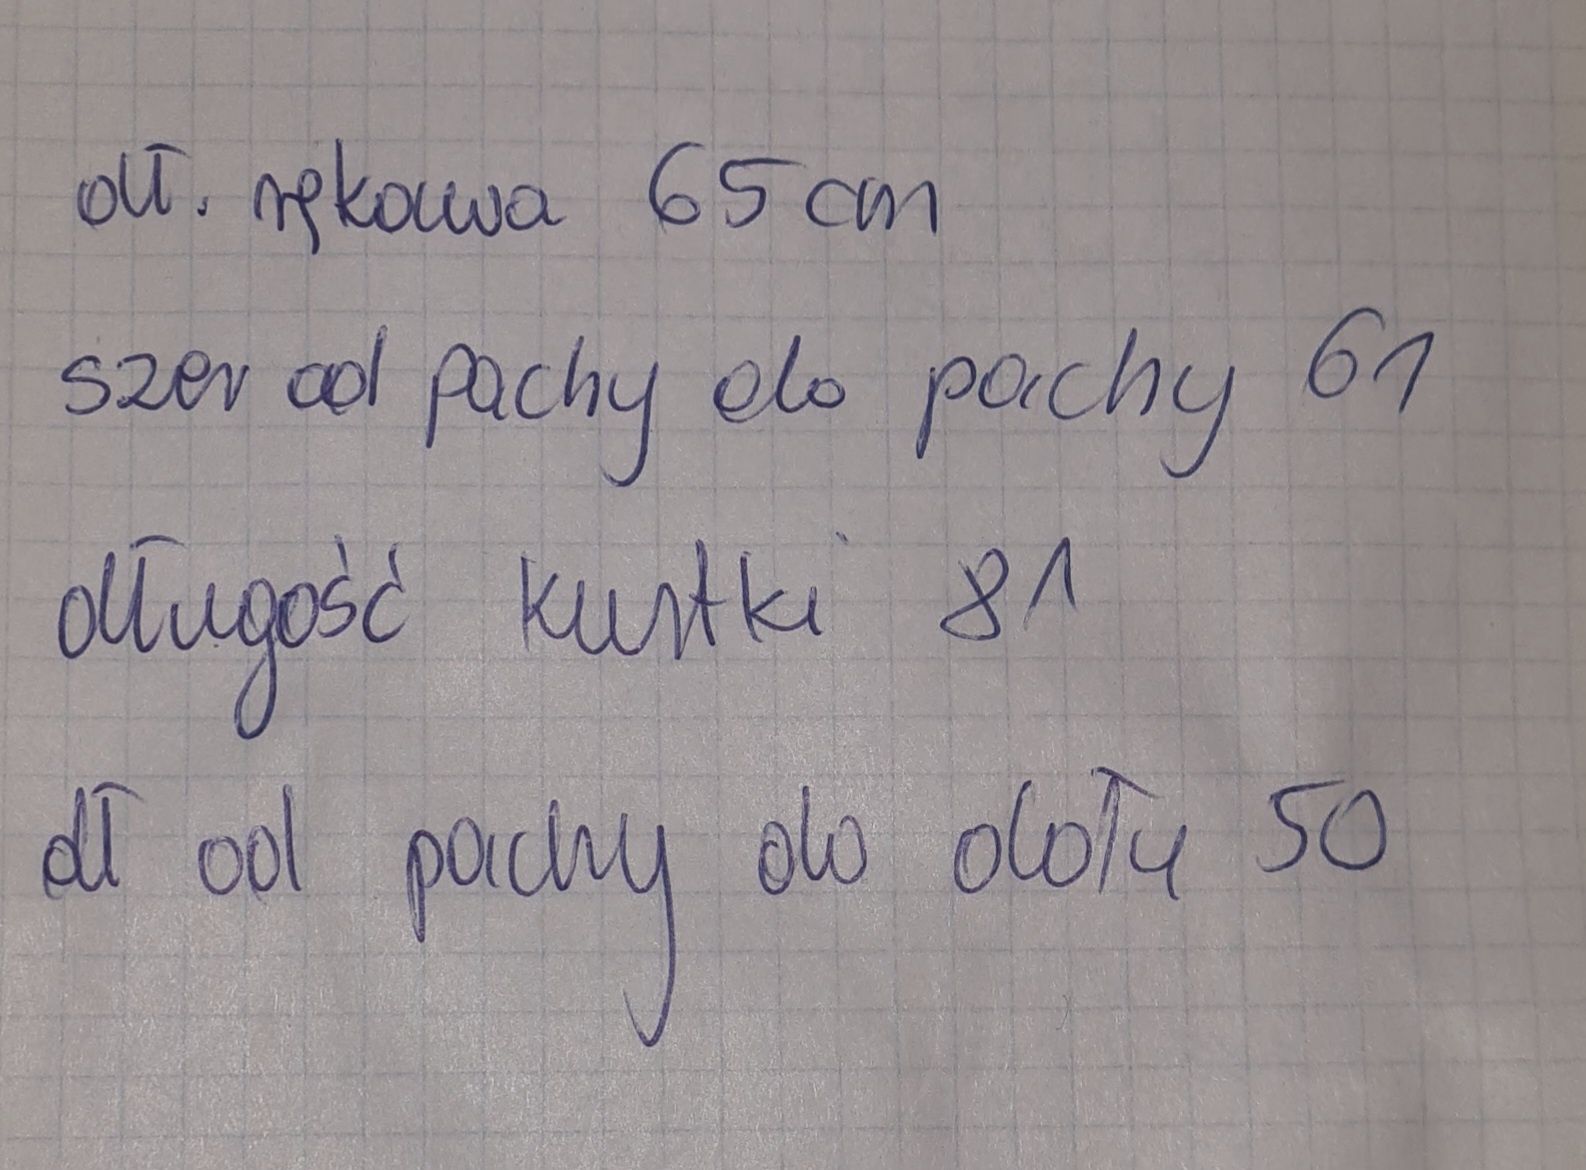 dł. rękawa 65 cm
szer od pachy do pachy 61
długość kurtki 81
dł od pachy do dołu 50